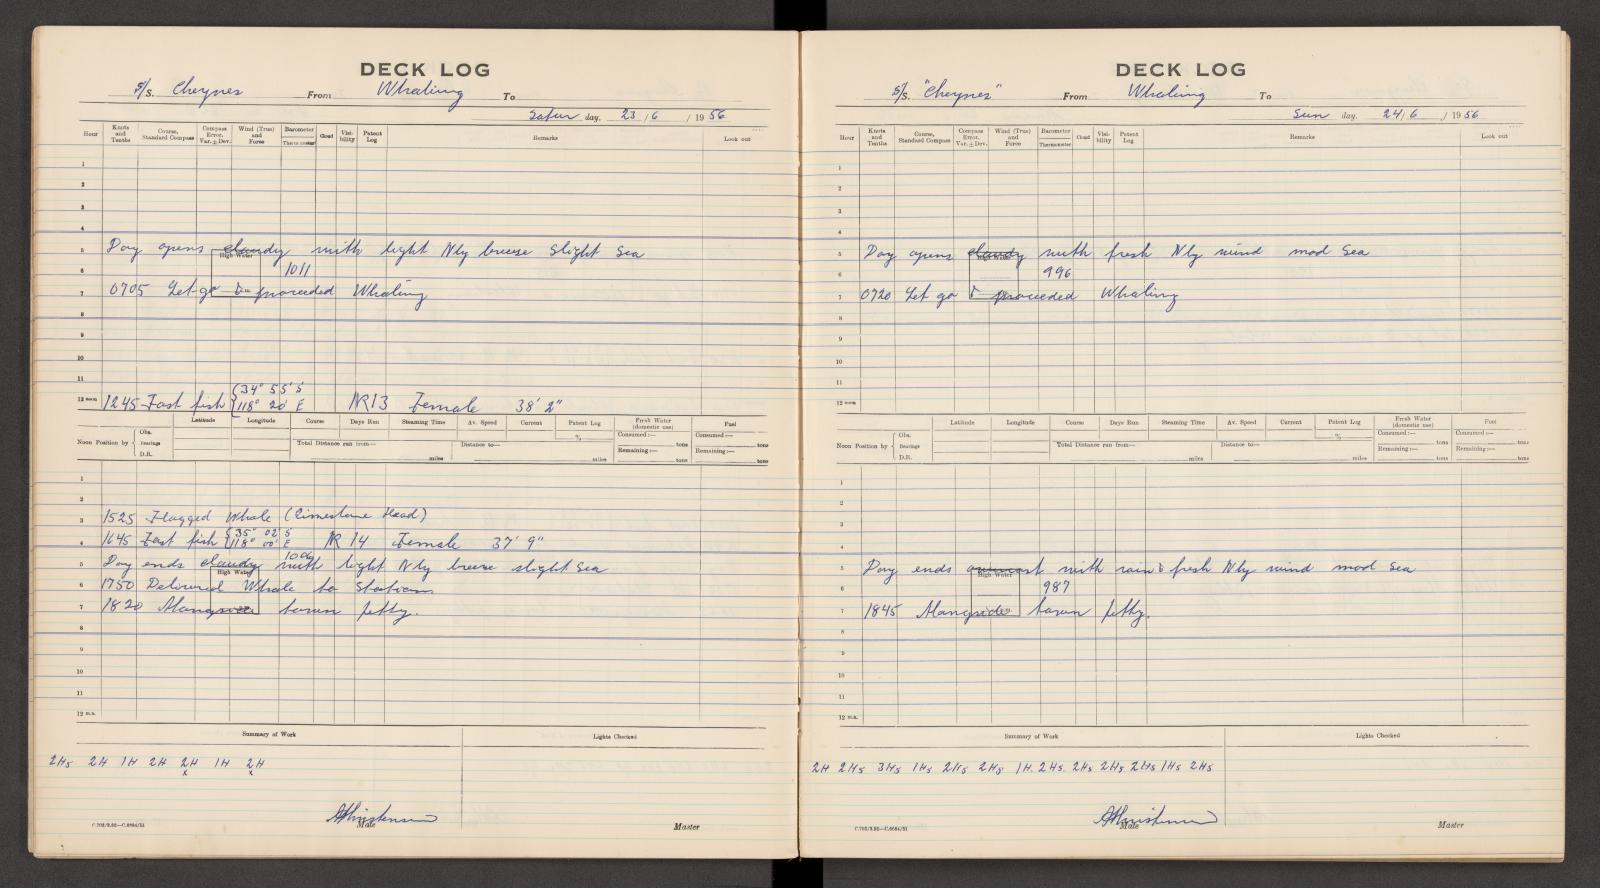 DECK LOG
S/S. Cheynes From Whaling To
Satur day. 23 / 6 / 19 56
Hour Knots and Tenths Course, Standard Compass Compass Error. Var. ± Dev. Wind (True) and Force Barometer Thermometer Cloud Visibility Patent Log Remarks Look out
1
2
3
4
5 Day opens cloudy with light Nly breeze slight sea
High Water
6 1011
7 0705 Let go & proceeded Whaling
8
9
10
11
12 noon 1245 Fast fish { 34° 55' S 118° 20' E NR 13 Female 38' 2"
Latitude Longitude Course Days Run Steaming Time Av. Speed Current Patent Log Fresh Water (domestic use) Fuel
Noon Position by { Obs. Bearings D.R. Total Distance run from— miles Distance to— miles % Consumed :— tons Remaining :— tons Consumed :— tons Remaining :— tons
1
2
3 1525 Flagged Whale (Limestone Head)
4 1645 Fast fish { 35° 02' S 118° 00' E NR 14 Female 37' 9"
1006
5 Day ends cloudy with light Nly breeze slight sea
High Water
6 1750 Delivered Whale to Station
7 1820 Alongside town jetty.
8
9
10
11
12 m.n.
Summary of Work Lights Checked
2Hs 2H 1H 2H 2H 1H 2H
x x
AChristensen
Mate Master
C.702/3.52—C.6664/51
DECK LOG
S/S. "Cheynes" From Whaling To
Sun day. 24/ 6 / 19 56
Hour Knots and Tenths Course, Standard Compass Compass Error. Var. ± Dev. Wind (True) and Force Barometer Thermometer Cloud Visibility Patent Log Remarks Look out
1
2
3
4
5 Day opens cloudy with fresh Nly wind mod sea
High Water
6 996
7 0720 Let go & proceeded Whaling
8
9
10
11
12 noon
Latitude Longitude Course Days Run Steaming Time Av. Speed Current Patent Log Fresh Water (domestic use) Fuel
Noon Position by { Obs. Bearings D.R. Total Distance run from— miles Distance to— miles % Consumed :— tons Remaining :— tons Consumed :— tons Remaining :— tons
1
2
3
4
5 Day ends overcast with rain & fresh Nly wind mod sea
High Water
6 987
7 1845 Alongside town jetty.
8
9
10
11
12 m.n.
Summary of Work Lights Checked
2H 2Hs 3Hs 1Hs 2Hs 2Hs 1H. 2Hs 2Hs 2Hs 2Hs 1Hs 2Hs
AChristensen
Mate Master
C.702/3.52—C.6664/51